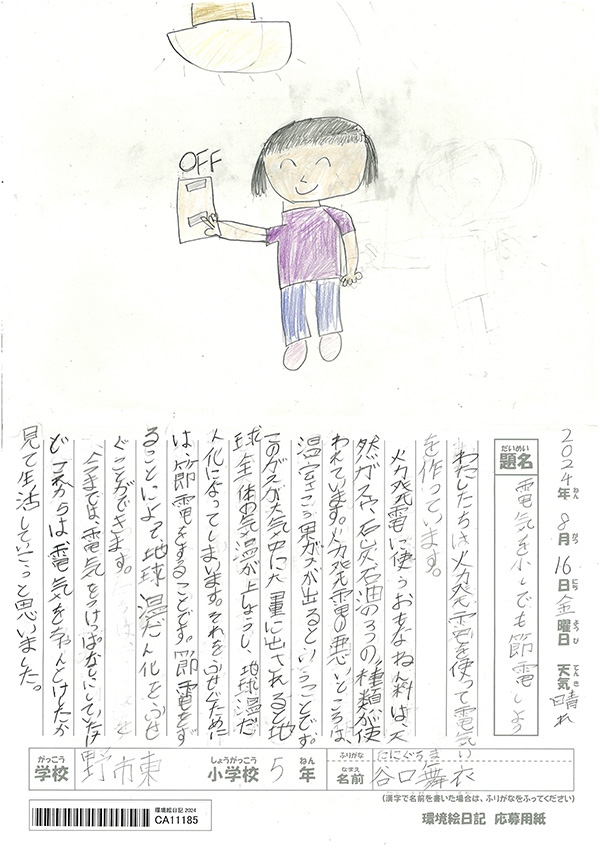 OFF
2024年 8月 16日 金曜日 天気 晴れ
ねん がつ にち ようび てんき
だいめい
題名 電気を少しでも節電しよう
わたしたちは火力発電を使って電気
を作っています。
火力発電に使うおもなねん料は、天
然ガスや、石炭石油の3つの種類が使
われています。火力発電の悪いところは、
温室こう果ガスが出るということです。
このガスが大気中に大量に出されると地
球全体の気温が上しょうし、地球温だ
ん化になってしまいます。それをふせぐために
は、節電をすることです。節電をす
ることによって、地球温だん化をふせ
ぐことができます。
今までは、電気をつけっぱなしにしていたけ
ど、これからは電気をちゃんとけしたか
見て生活していこうと思いました。
がっこう しょうがっこう ねん
学校 野市東 小学校 5年
ふりがな たにぐちまい
なまえ
名前 谷口舞衣
(漢字で名前を書いた場合は、ふりがなをふってください)
環境絵日記 2024
CA11185
環境絵日記 応募用紙